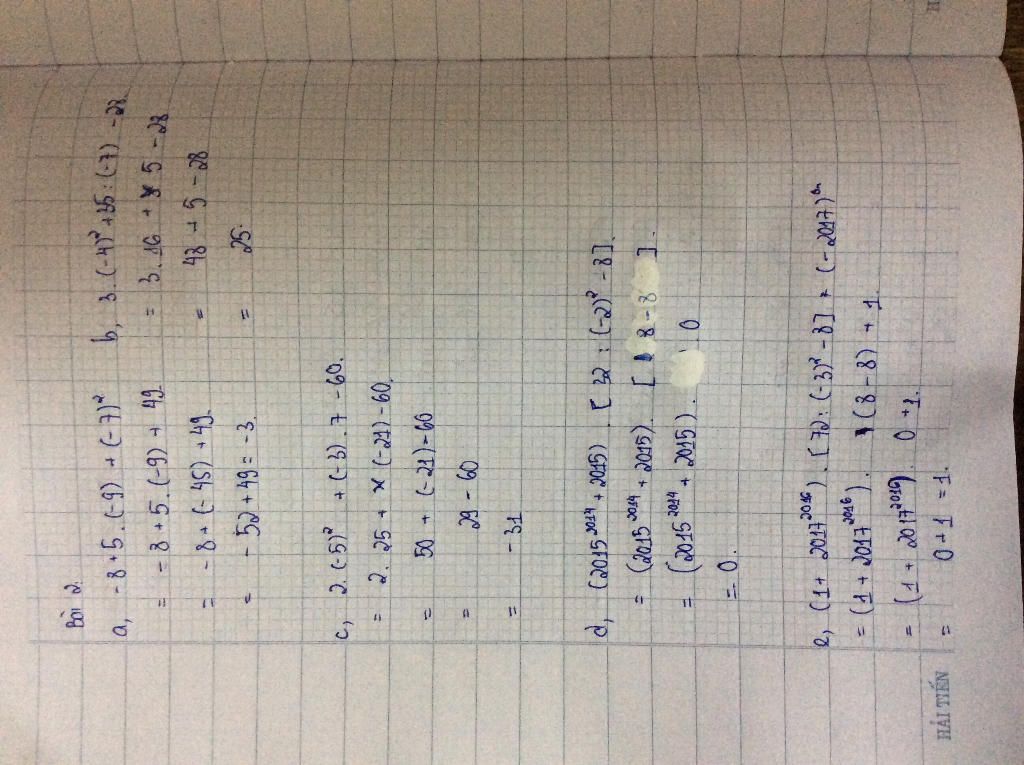 Bài 2:
a, -8+5.(-9)+(-7)²
= -8+5.(-9)+49
= -8+(-45)+49
= -52+49=-3.
b, 3.(-4)²+35:(-7)-28
= 3.16+5-28
= 48+5-28
= 25.
c, 2.(-5)²+(-3).7-60.
= 2.25+(-21)-60.
= 50+(-21)-60
= 29-60
= -31
d, (2015²⁰¹⁴+2015).[32:(-2)²-8].
= (2015²⁰¹⁴+2015).[8-8].
= (2015²⁰¹⁴+2015).0
= 0.
e, (1+2017²⁰¹⁶).[72:(-3)²-8]+(-2017)
= (1+2017²⁰¹⁶).(8-8)+1.
= (1+2017²⁰¹⁶).0+1.
= 0+1=1.
HẢI TIẾN